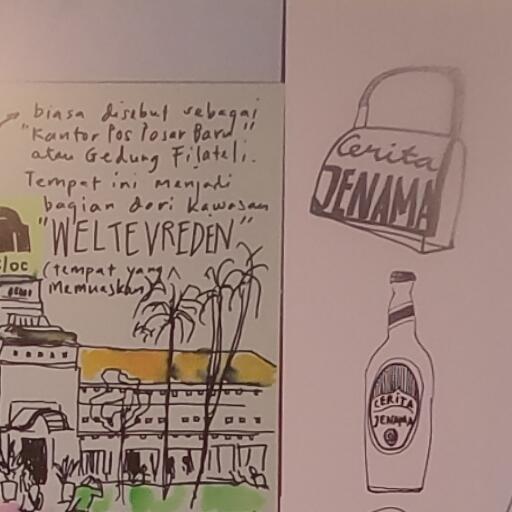 biasa disebut sebagai
"Kantor Pos Pasar Baru"
atau Gedung Filateli.
Tempat ini menjadi
bagian dari Kawasan
"WELTEVREDEN"
(tempat yang
memuaskan)
Bloc
Cerita
JENAMA
CERITA
JENAMA